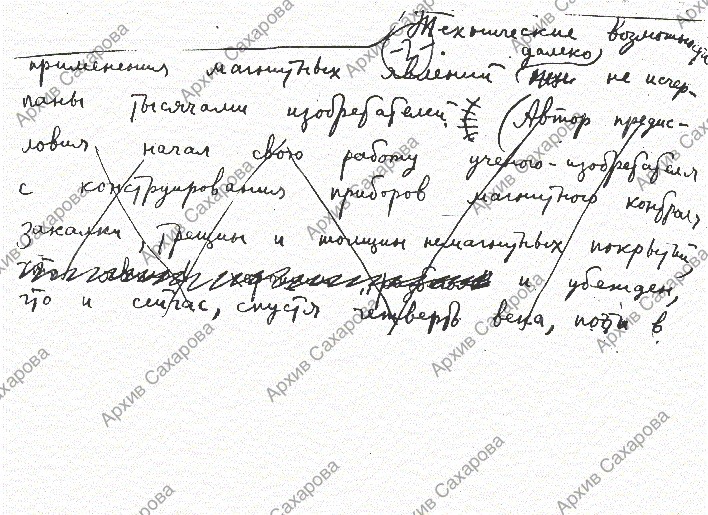 Технические возможности
применения магнитных явлений далеко не исчер-
паны тысячами изобретателей. (Автор предис-
ловия начал свою работу ученого-изобретателя
с конструирования приборов магнитного контроля
закалки, трещин и толщин немагнитных покрытий
и убежден,
что и сейчас, спустя четверть века, почти в